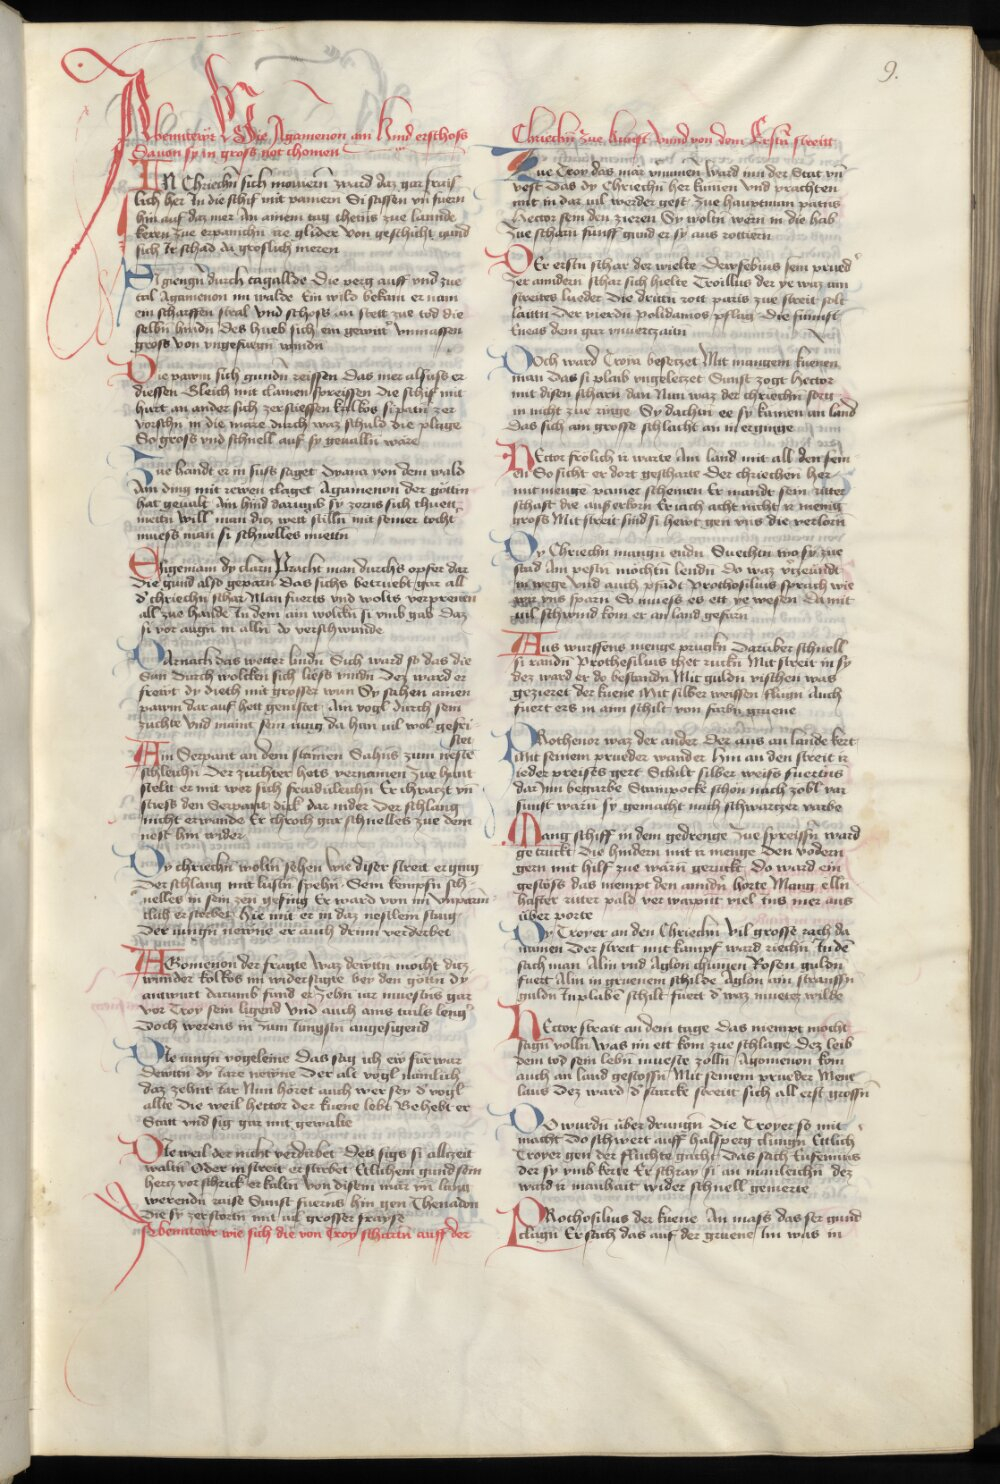 9.
Abenntewr Wie Agamenon ain hind erschoss
Dauon sy in gross not chomen
In Chriechn sich mouiern ward daz gar frais
lich her In die schif mit pamern Si stassen vn fuern
hin auf daz mer An ainem tag chetus zue lannde
keren zue erpaimchn ire glider von geschicht gund
sich Ir schad da groslich meren
Si giengn durch ragallde Die perg auff vnd zue
tal Agamenon im walde Ein wild bekam er nam
ein scharffen stral vnd schoss an stett zue tod die
selbn hindn Des hueb sich ein gewitr vnmassen
gross von vngefuegn winden
Die pawm sich gundn reissen Das mer alsuss er
diessen Gleich mit flamen spreissen Die schif mit
hurt an ander sich zerstiessen kolkos sipatn zer
vorschn in die märe durch waz schuld die plage
So gross vnd schnell auf sy geualln wäre
Zue handt er in suss saget Dyana von dem wald
Ain ding mit rewen claget Agamenon der göttin
hat geualt Ain hind darumb sy zorns sich thuett
metin will man ditz wetr stilln mit seiner tocht
muess man si schnelles muettn
Effigeniam dy clarn Pracht man durchs opfer dar
Die gund also geparn Das sichs betruebt gar all
d chriechn schar Man fuerts vnd wolts verprenen
all zue hannde In dem ain wolckn si vmb gab Daz
si vor augn in alln do verschwunde
Darnach das wetter lindn Sich ward so das die
Sun Durch wolcken sich liess vindn Dez ward er
frewt dy dieth mit grosser wun Sy sahen ainen
pawm dar auf hett genistet Ain vogl durch sein
zuchte vnd maint sein iung da han vil wol gefri
stet
Ain Serpant an dem stamen Sahns zum neste
schleichn Der zuchter hets vernamen Zue hant
stellt er mit wer sich freuiduleichn Er chratzt vn
stiess den Serpant dick dar nider Der schlang
nicht erwande Er chroch gar schnelles zue dem
nest hin wider
Dy chriechn woltn sehen Wie diser streit ergieng
Der schlang mit lüstn spehn Sein kempfn sch
nelles in sein zen gefing Er ward von im vnparm
iclich ersterbet Hie mit er in daz nestlein staig
Der iungn newne er auch drinn verderbet
Agomenon der fragte Waz dewttn mocht ditz
wunder kolkos im widersagte bey den göttn dy
antwurt darumb fand er Zehn iar muestns gar
vor Troy sein ligend Vnd auch ains tails leng
Doch werens in zum Iungstn angesigend
Die iungn vogeleine Das sag ich ew für war
Dewttn dy iare newne Der alt vogl nämlich
daz zehnt iar Nun höret auch wer sey d vogl
allte Die weil hector der kuene lebt Behebt er
Statt vnd sig gar mit gewalte
Die weil der nicht verdirbet Des sigs si allzeit
waltn Oder in streit er stirbet Etlichem gund sein
hertz vor schrick er kaltn Von disem mär vn lang
werendn raise Sunst fuerns hin gen Thenadon
Die sy zerstortn mit vil grosser frayse
Abentewr wie sich die von Troy schartn auff der
Chriechn zue kunft vnnd von dem Erstn streitt
Zue Troy das mär vnuernn Ward inn der Stat vn
vest Das dy Chriechn her kumen Vnd prachten
mit in dar vil werder gest Zue hauptman patns
Hector sein den zieren Sy woltn wern in die hab
Zue scharn funff gund er sy aus rottiern
Der erstn schar der wielte Deysebius sein prued
Der anndern schar sich hielte Troillus der ye waz ain
streites lueder Die drittn rott paris zue streit solt
laittn Der vierdn polidamos pflag Die funnft
Eneas dem gar vnuerzaitn
Doch ward Troya besetzet Mit mangem kuenen
man Das si plaib vngeletzet Sunst zogt hector
mit disen scharn dan Nun waz der chriechn sorg
in nicht zue ringe Sy dachtn ee sy kamen an land
Das sich ain grosse schlacht an in erginge
Hector frölich ir warte Am land mit all den sein
en So sicht er dort gescharte Der chriechen her
mit menge paner scheinen Er mandt sein ritter
schaft die auserkorn Er iach acht nicht ir menig
gross Mit streit sind si hewt gen vns die verlorn
Dy Chriechn mangn endn Suechtn wo sy zue
stad Am pestn möchtn lendn Do waz verzeundt
in wege Vnd auch pfadt Prothosiluis sprach wie
wir vns sparn So muess es ett ye wesen Damit
vil schwind kom er an land gefarn
Aus wurffens menge prugkn Darüber schnell
si randn Prothesilius thet ruckn Mit streit in sy
dez ward er do bestandn Mit guldn vischen was
gezieret der kuene Mit silber weissen flugn Auch
fuert ers in ainn schilt von farbn gruene
Prothenor waz der ander Der aus an lande kert
Mit seinem prueder wander Hin an den streit ir
ieder preises gert Schilt silber weiss fuertns
dar inn begarbe Stainpocke schön nach zobl var
sunst warn sy gemacht nach schwartzer varbe
Mang schiff in dem gedrenge Zue spreissn ward
getruckt Die hindern mit ir menge Den vodern
gern mit hilf zue warn geruckt Do ward ein
gestöss das niempt den anndn horte Mang elln
hafter ritter pald verwapnnt viel ins mer aus
über porte
Dy Troyer an den Chriechn Vil grosse rach da
namen Der streit mit kampf ward riechn In de
sach man Alin vnd Aglon chumen Rosen guldn
fuert Alin in gruenem schilde Aglon ain straussn
guldn In plabe schilt fuert d waz muetes wilde
Hector strait an dem tage Das niempt mocht
sagn volln Was im ett kom zue schlage Dez leib
dem tod sein lebn mueste zolln Agomenon kom
auch an land gestossn Mit seinem prueder Mene
laus Dez ward d starcke streitt sich all erst grossn
Do wurdn über drungn Die Troyer so mit
macht Do schwert auff halsperg clungn Ettlich
Troyer gen der fluchte gacht Das sach Eusemius
der sy vmb kerte Er schray si an manleichn dez
ward ir manhait wider schnell gemerte
Prothosilius der kuene An mass das ser gund
clagn Er sach das auf der gruene Im was in